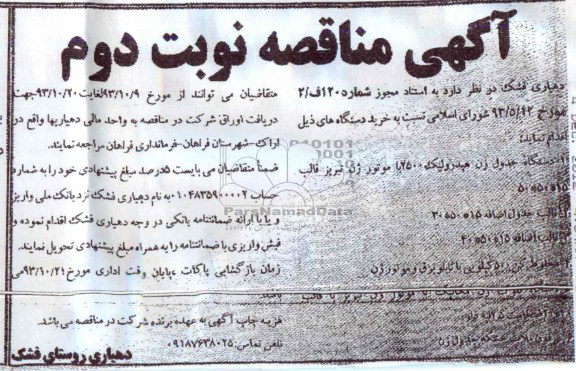 آگهی مناقصه نوبت دوم
دهیاری فشک در نظر دارد به استناد مجوز شماره ۱۲۰/ف/۲
مورخ ۹۳/۵/۴۲ شورای اسلامی نسبت به خرید دستگاه های ذیل
اقدام نماید:
دستگاه جدول زن هیدرولیک ۲۵۰۰ با موتور ژن تبریز قالب
۵۰*۵۰*۱۵
قالب جدول اضافه ۱۵*۵۰*۳۰
قالب اضافه ۱۵*۵۰*۴۰
کیلویی با تابلو برق و موتور ژن
متقاضیان می توانند از مورخ ۹۳/۱۰/۹ لغایت ۹۳/۱۰/۲۰ جهت
دریافت اوراق شرکت در مناقصه به واحد مالی دهیاریها واقع در
اراک-شهرستان فراهان-فرمانداری فراهان مراجعه نمایند.
ضمناً متقاضیان می بایست ۵درصد مبلغ پیشنهادی خود را به شماره
حساب ۰۱۰۴۸۳۵۹۰۰۰۰۲ به نام دهیاری فشک نزد بانک ملی واریز
و یا با ارائه ضمانتنامه بانکی در وجه دهیاری فشک اقدام نموده و
فیش واریزی یا ضمانتنامه را به همراه مبلغ پیشنهادی تحویل نمایند.
زمان بازگشایی پاکات پایان وقت اداری مورخ ۹۳/۱۰/۲۱ می
باشد.
هزینه چاپ آگهی به عهده برنده شرکت در مناقصه می باشد.
تلفن تماس: ۰۹۱۸۷۶۳۸۰۲۵
دهیاری روستای فشک
ParsNamadData